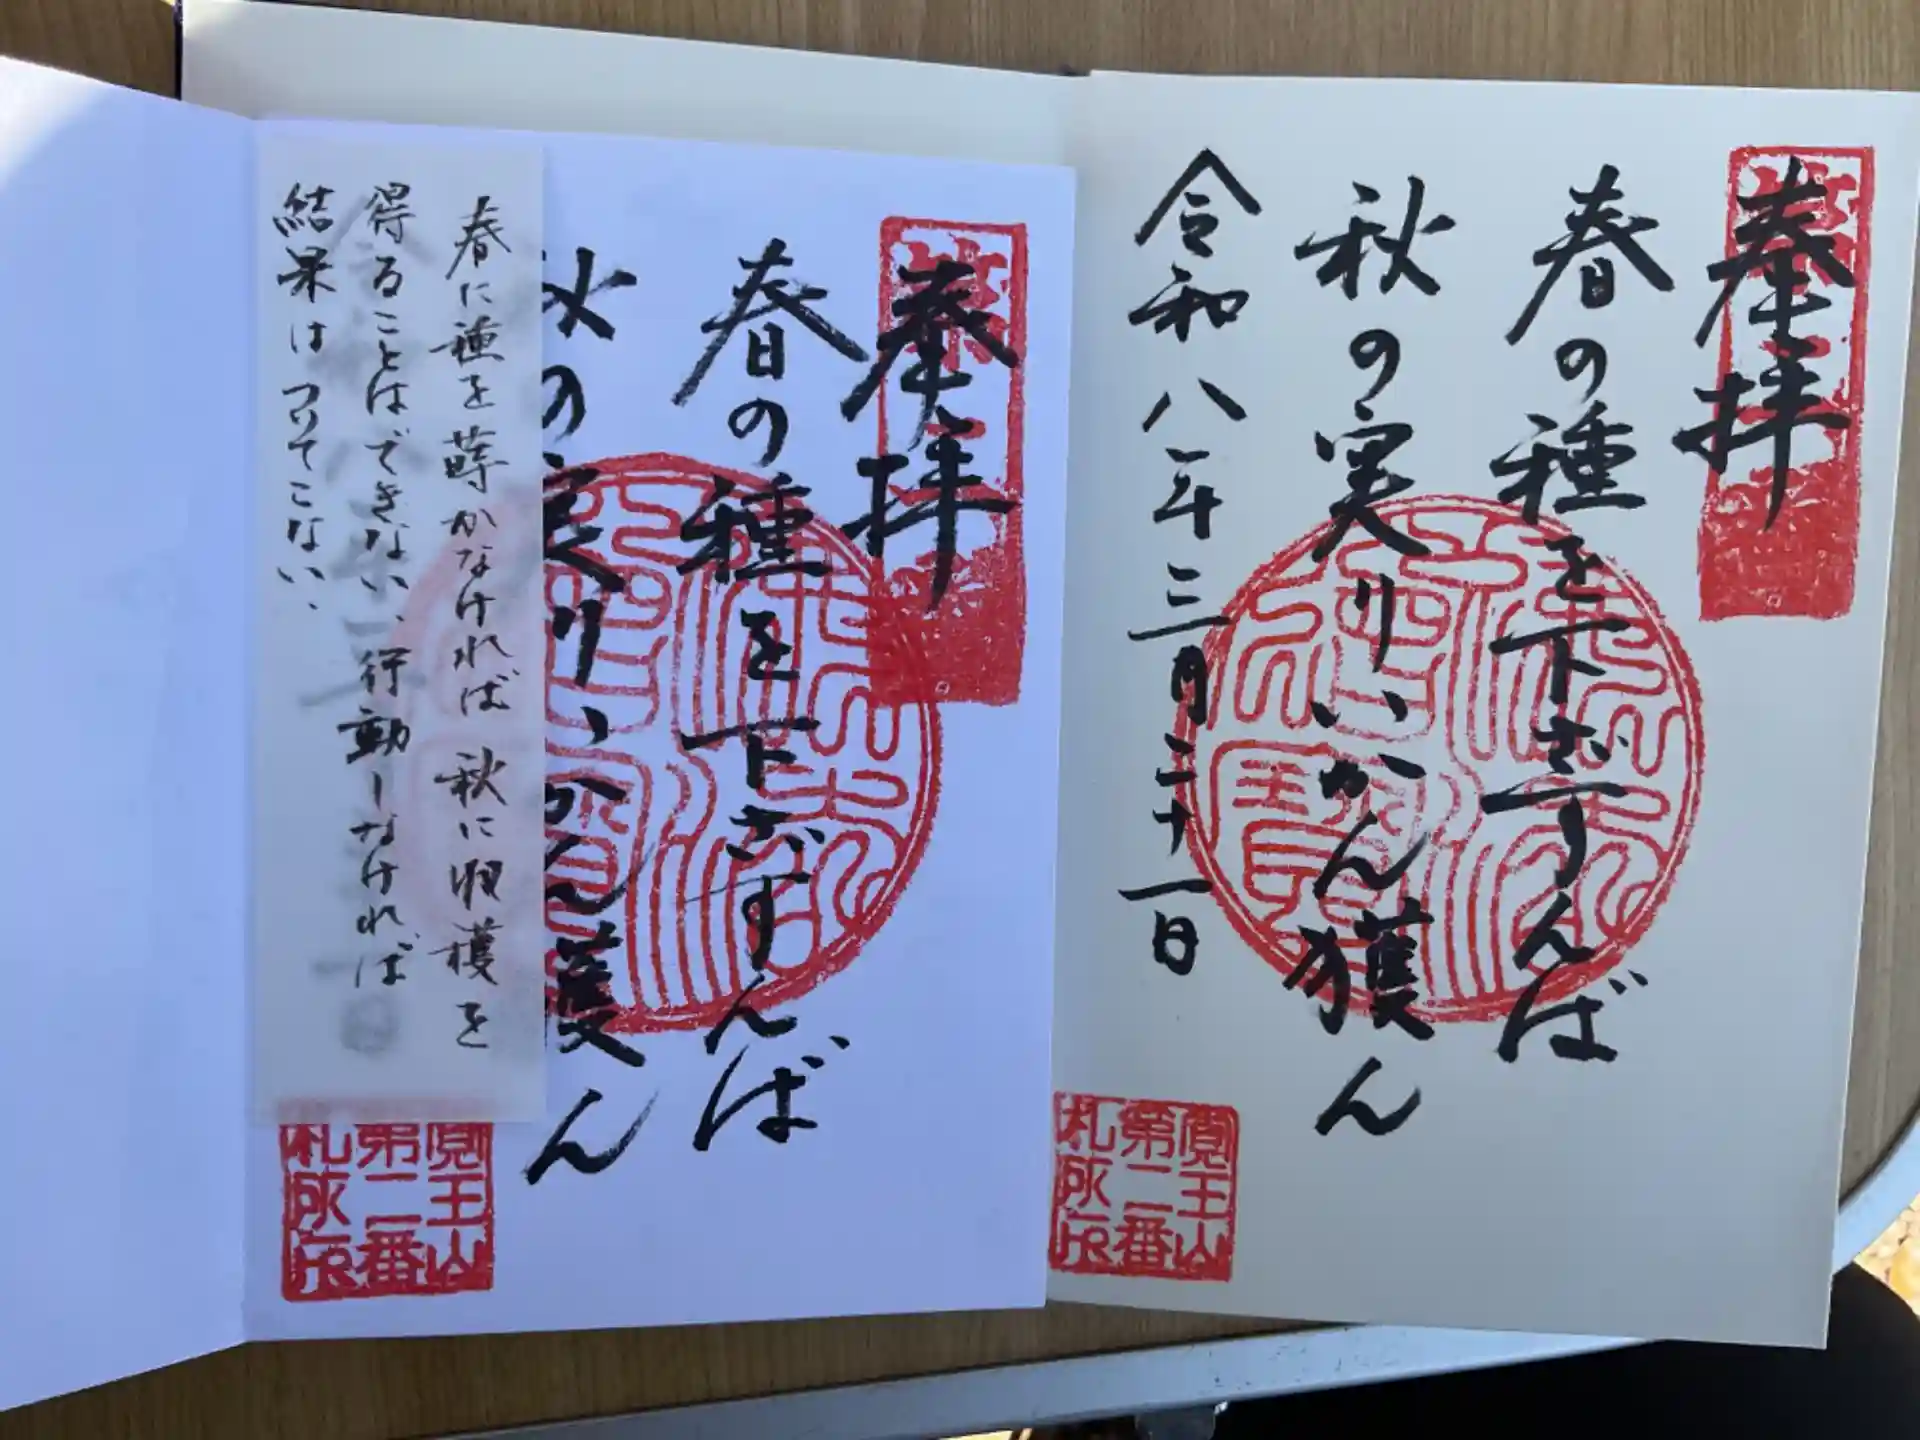 奉拝
春の種を下さずんば
秋の実りいかん獲ん
令和八年三月二十一日
覚王山
第二番
札所印
奉拝
春の種を下さずんば
秋の実りいかん獲ん
春に種を蒔かなければ 秋に収穫を
得ることはできない、行動しなければ
結果はついてこない、
第二番
札所印